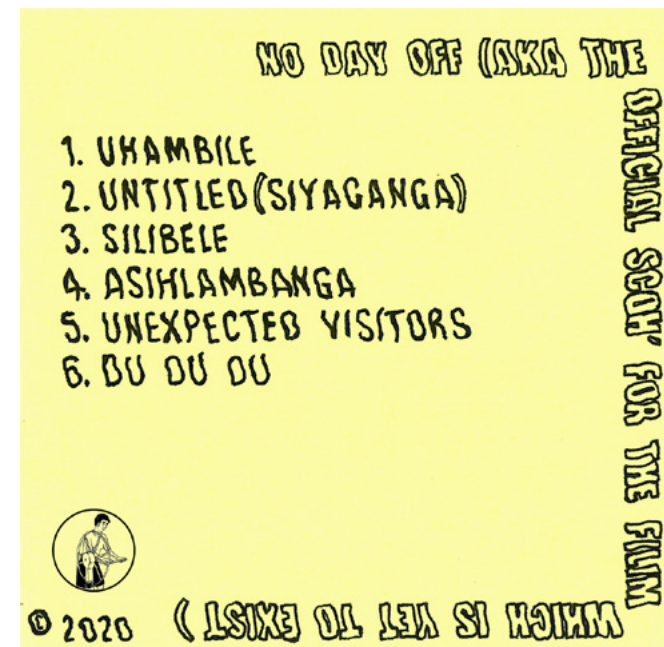 NO DAY OFF (AKA THE
OFFICIAL SCOH' FOR THE FILIM
WHICH IS YET TO EXIST)
1. UHAMBILE
2. UNTITLED (SIYAGANGA)
3. SILIBELE
4. ASIHLAMBANGA
5. UNEXPECTED VISITORS
6. DU DU DU
© 2020